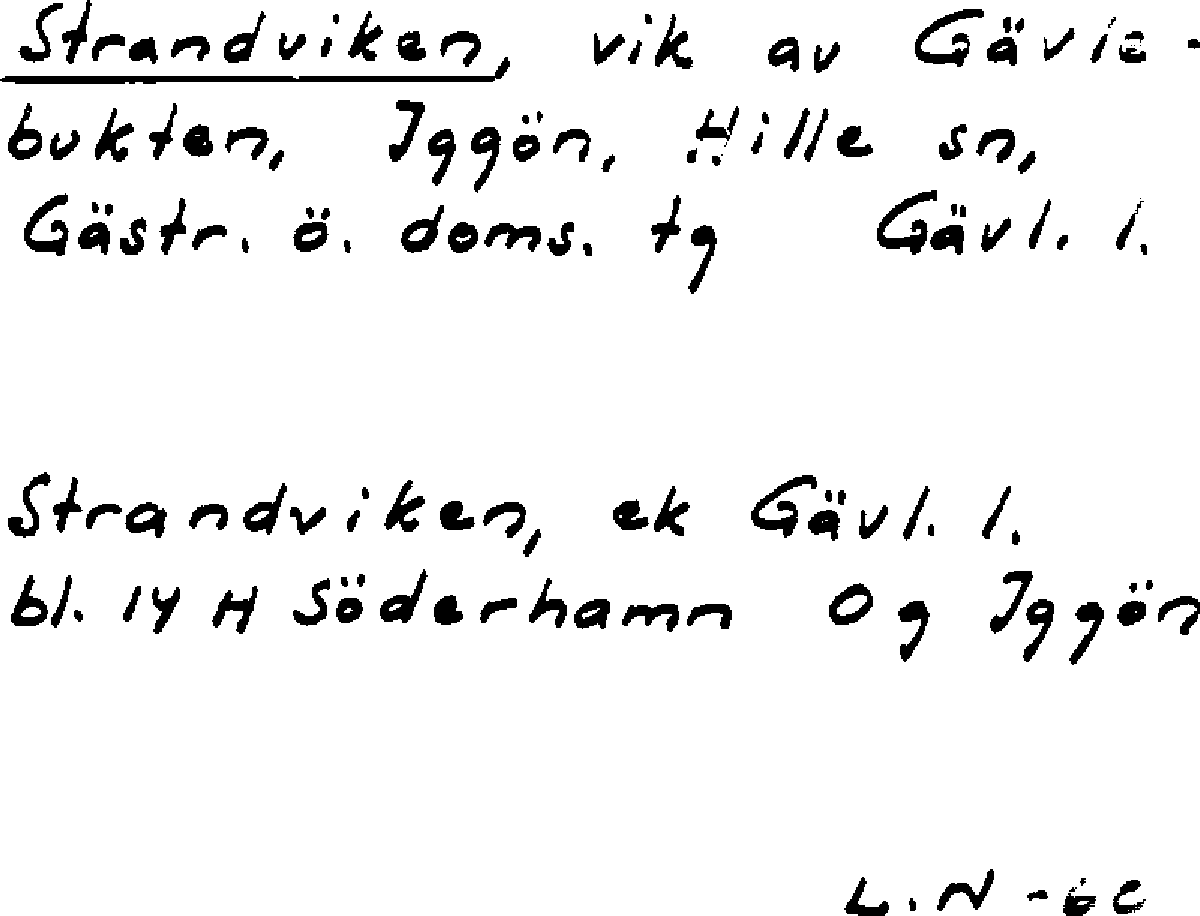 Strandviken, vik av Gävle-
bukten, Iggön, Hille sn,
Gästr. ö. doms. tg Gävl. l.
Strandviken, ek Gävl. l.
bl. 14 H Söderhamn 0 g Iggön
L. N